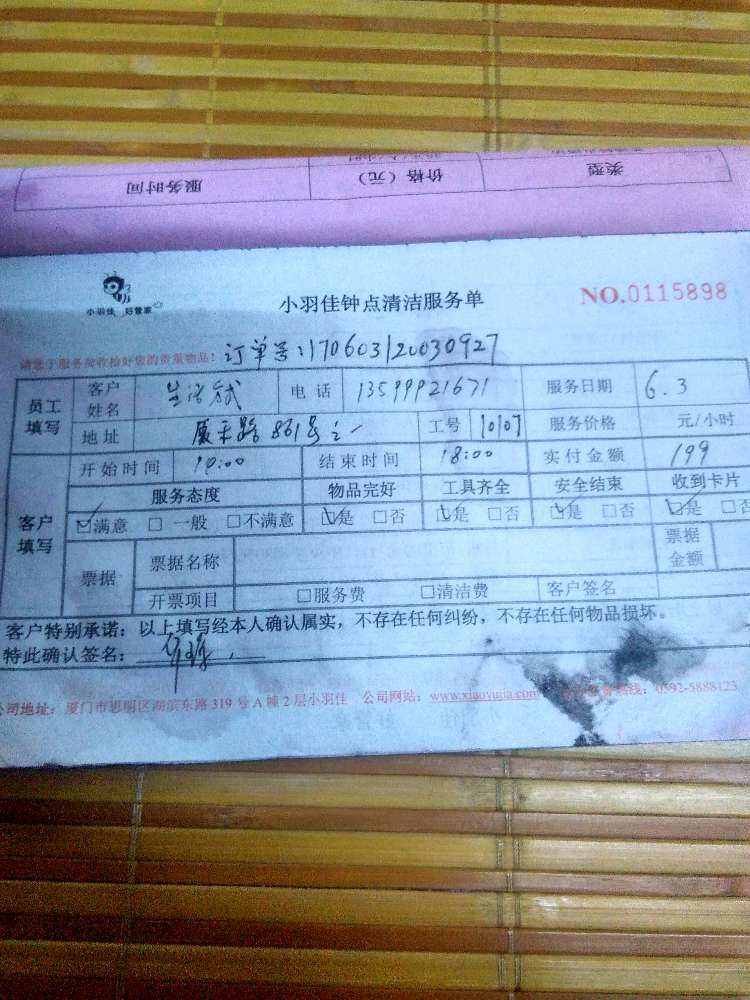 类型 价格（元） 服务时间
小羽佳 好管家
小羽佳钟点清洁服务单
NO.0115898
请您于服务前收拾好您的贵重物品！ 订单号:170603120030927
员工填写 客户姓名 生活 电话 13599921671 服务日期 6.3
地址 厦禾路861号之一 工号 10107 服务价格 元/小时
开始时间 :00 结束时间 18:00 实付金额 199
客户填写 服务态度 物品完好 工具齐全 安全结束 收到卡片
☑满意 □一般 □不满意 ☑是 □否 ☑是 □否 ☑是 □否 ☑是 □否
票据 票据名称 票据金额
开票项目 □服务费 □清洁费 客户签名
客户特别承诺：以上填写经本人确认属实，不存在任何纠纷，不存在任何物品损坏。
特此确认签名：
公司地址：厦门市思明区湖滨东路319号A幢2层小羽佳 公司网站：www.xiaoyujia.com 热线：0592-5888123